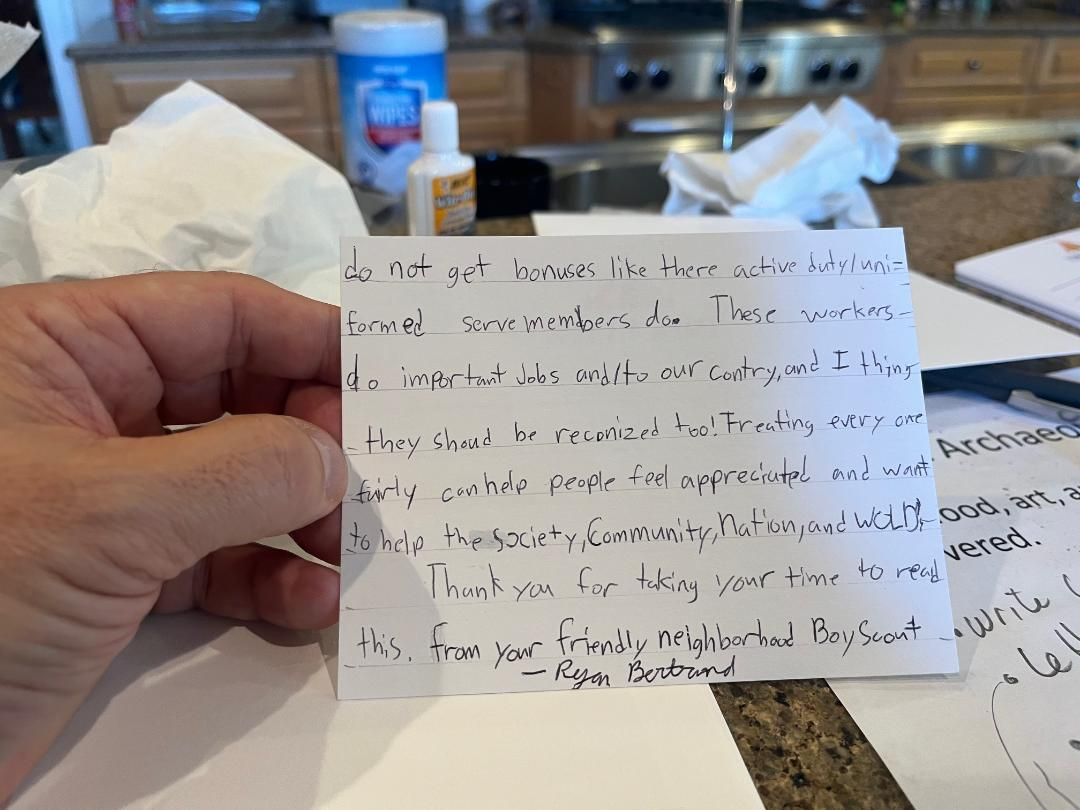 WIPES
BIC
Wite-Out
do not get bonuses like there active duty/uni=
formed serve members do. These workers-
do important Jobs and/to our contry, and I thing
-they shoud be reconized too! Treating every one
fairly can help people feel appreciated and want
to help the Society, Community, Nation, and WORLD.
Thank you for taking your time to read
this. from your friendly neighborhood Boy Scout
- Ryan Bertrand
Archaeo
ood, art, a
vered.
• write